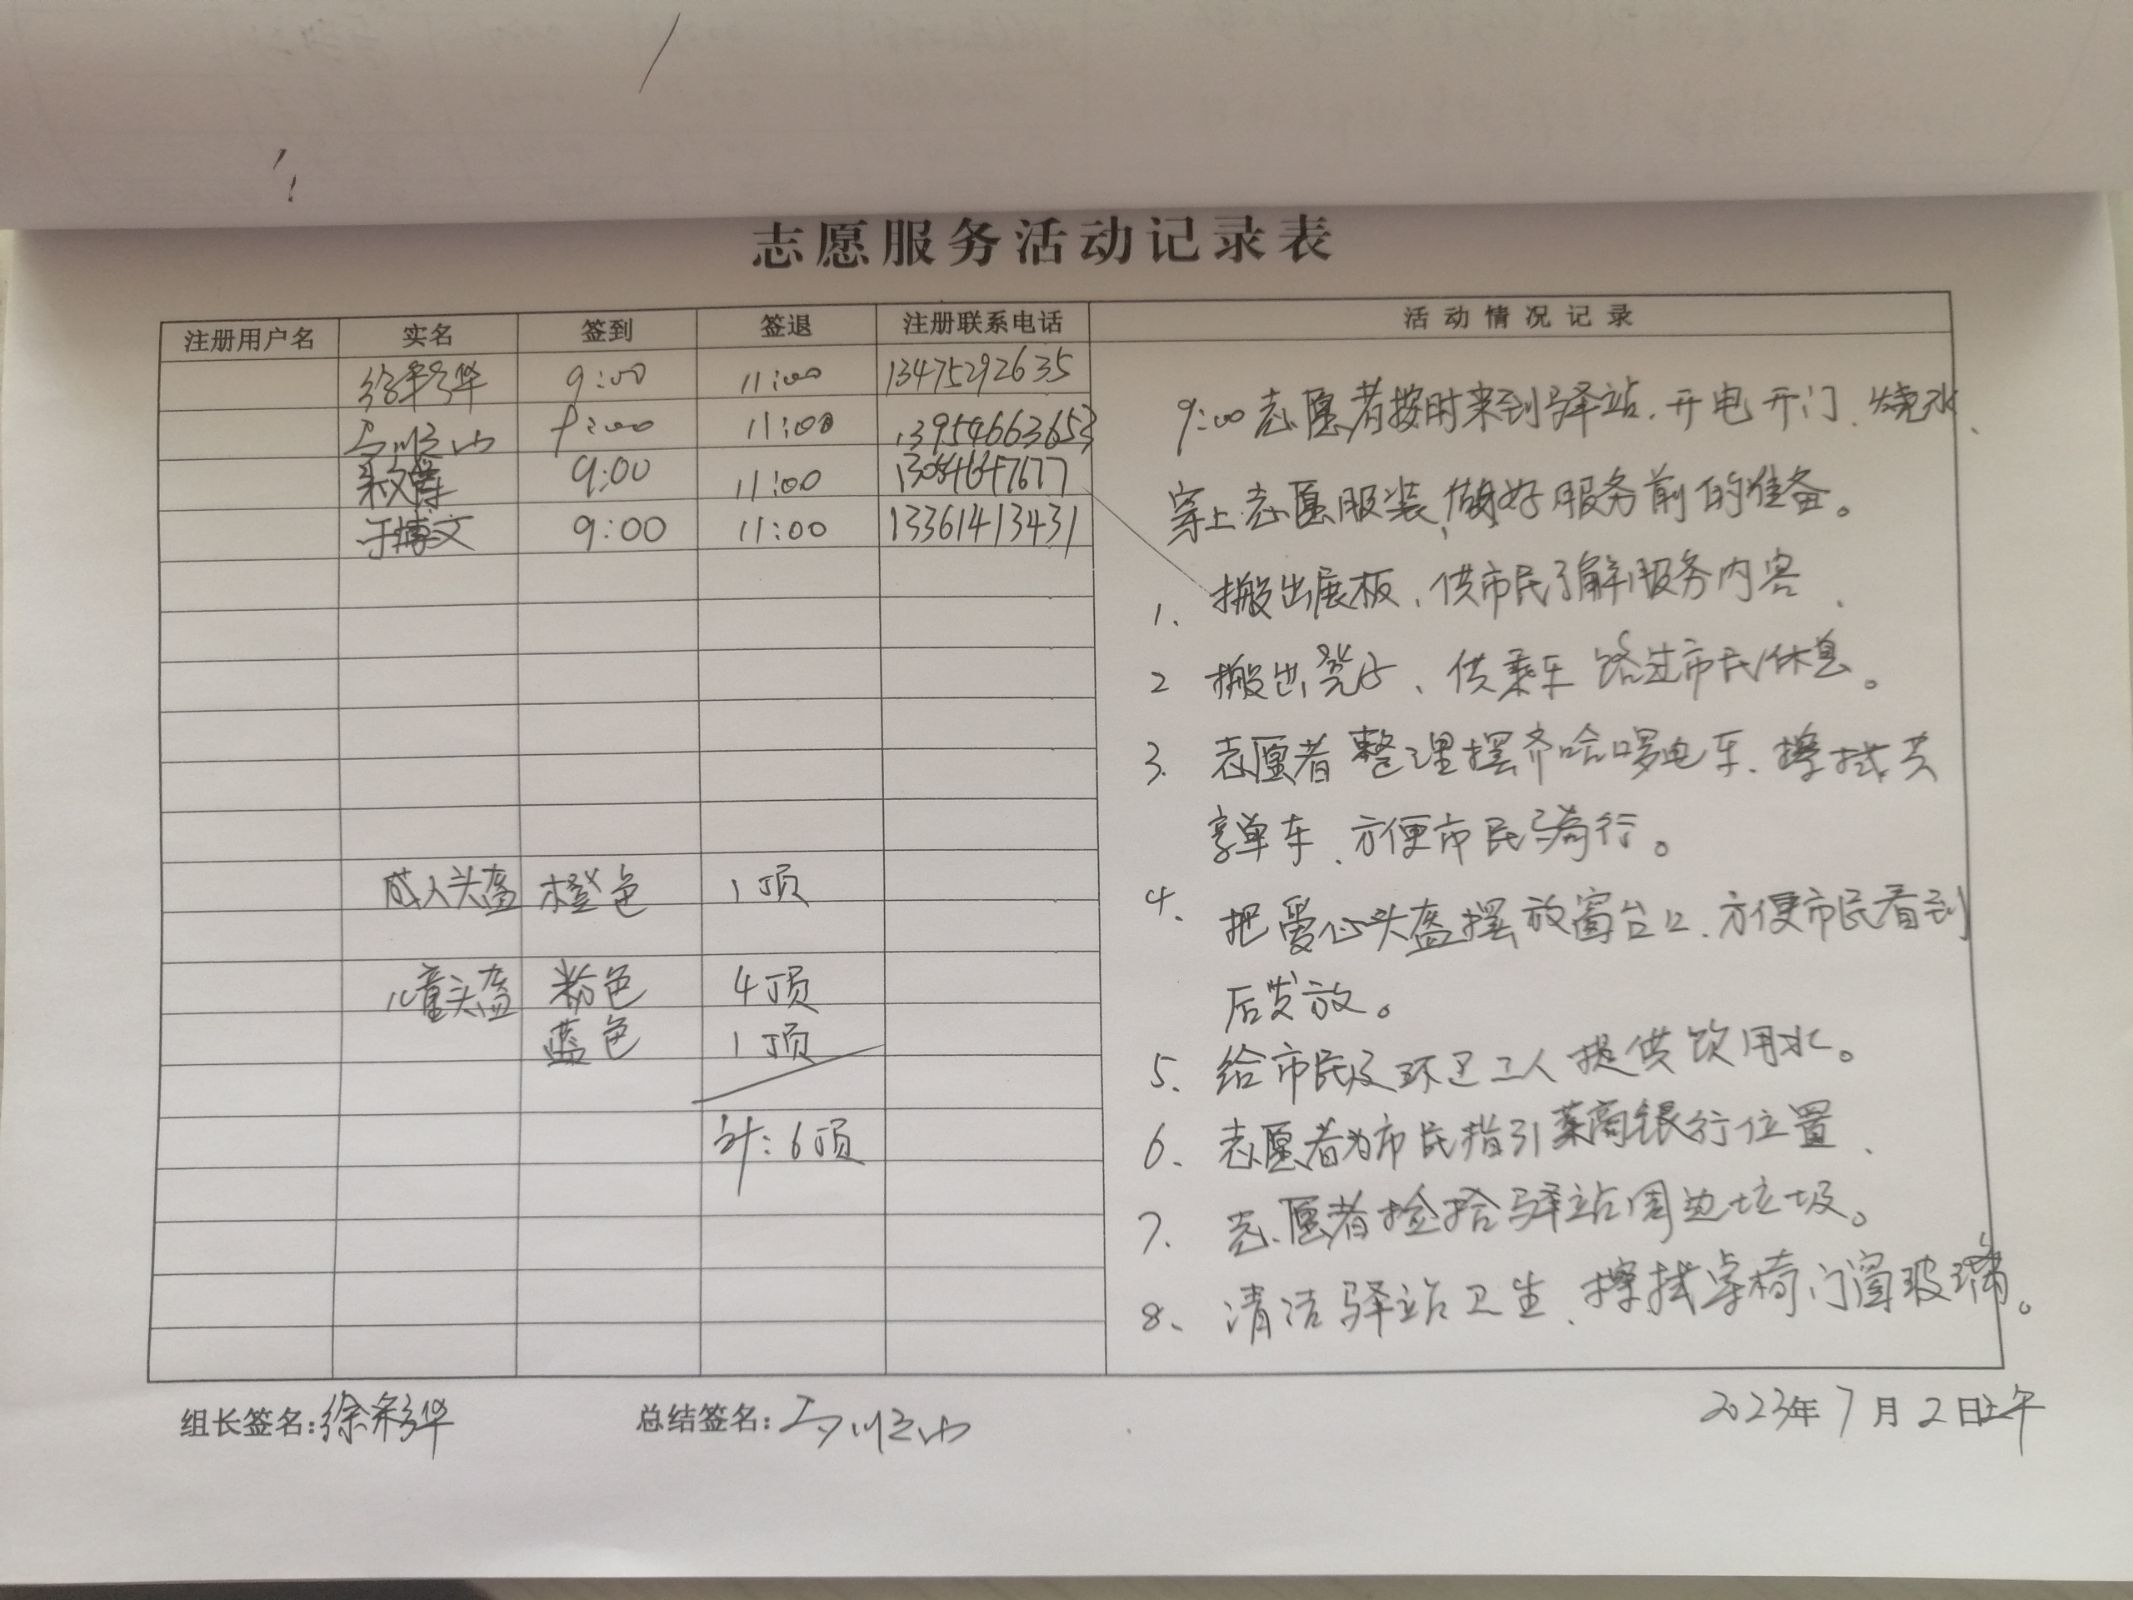 志愿服务活动记录表
注册用户名 实名 签到 签退 注册联系电话 活动情况记录
徐彩华 9:00 11:00 13475292635
9:00 11:00 13954663653
9:00 11:00 13084647677
于博文 9:00 11:00 13361413431
成人头盔 橙色 1顶
儿童头盔 粉色 4顶
蓝色 1顶
计:6顶
9:00志愿者按时来到驿站、开电开门、烧水、
穿上志愿服装,做好服务前的准备。
1、搬出展板、供市民了解服务内容、
2 搬出凳子、供乘车路过市民休息。
3、志愿者整理摆齐哈啰电车、擦拭共
享单车、方便市民骑行。
4、把爱心头盔摆放窗台口、方便市民看到
后发放。
5、给市民及环卫工人提供饮用水。
6、志愿者为市民指引莱商银行位置、
7、志愿者捡拾驿站周边垃圾。
8、清洁驿站卫生、擦拭桌椅门窗玻璃。
组长签名:徐彩华 总结签名: 2023年7月2日上午